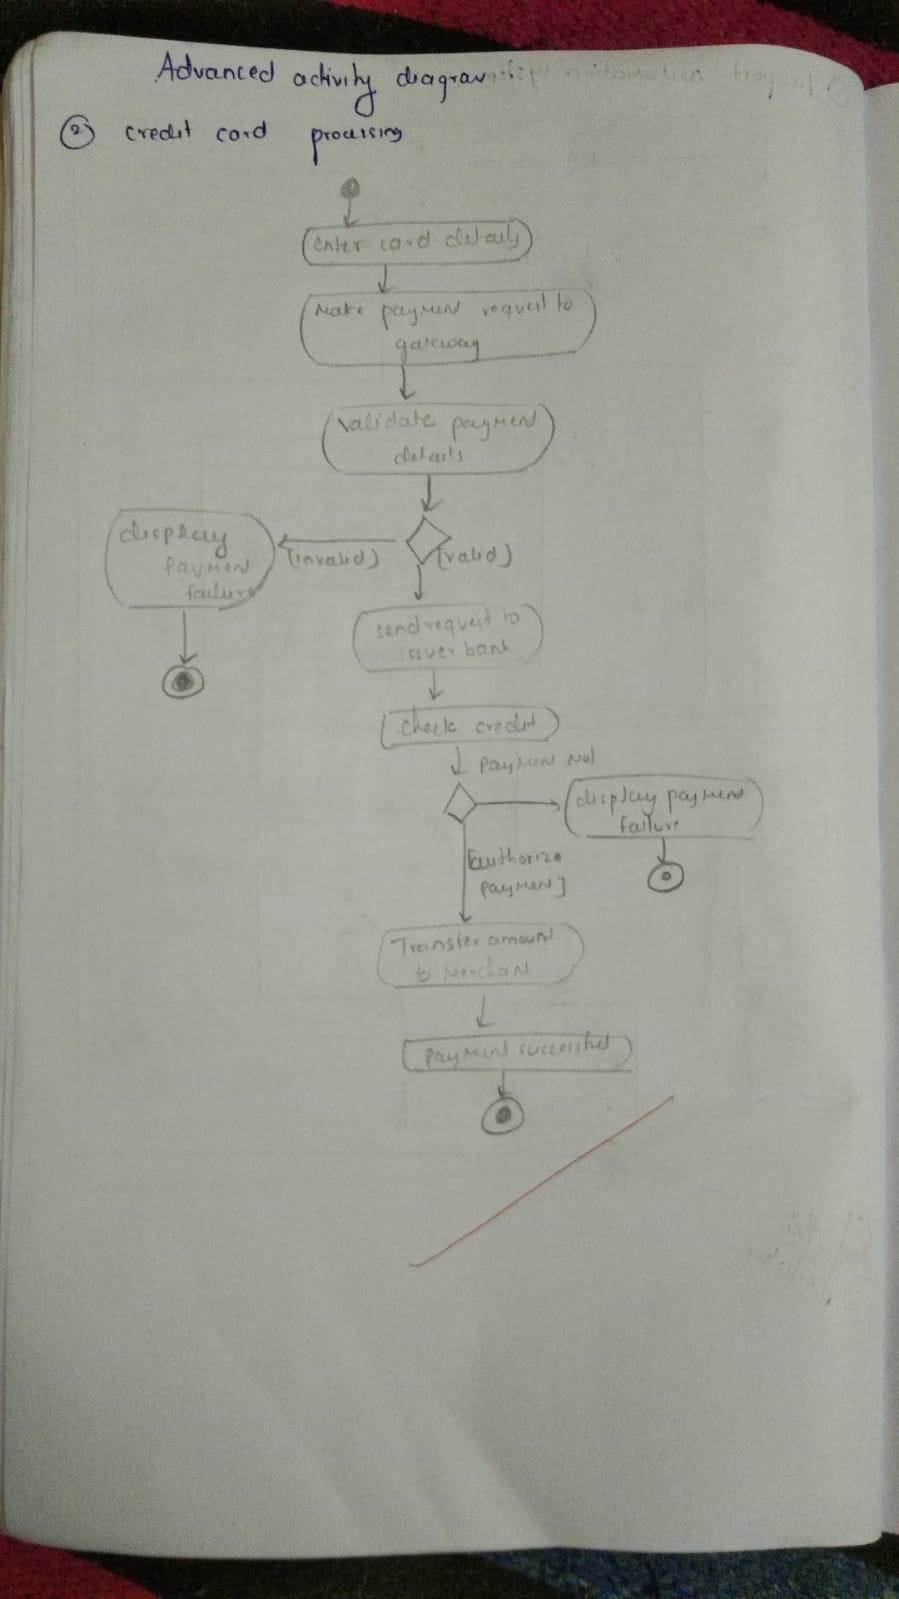 Advanced activity diagram
② credit card processing
Enter card details
Make payment request to
gateway
Validate payment
details
display
Payment
failure
(invalid)
(valid)
send request to
issuer bank
check credit
payment not
display payment
failure
[authorize
payment]
Transfer amount
to Merchant
payment successful